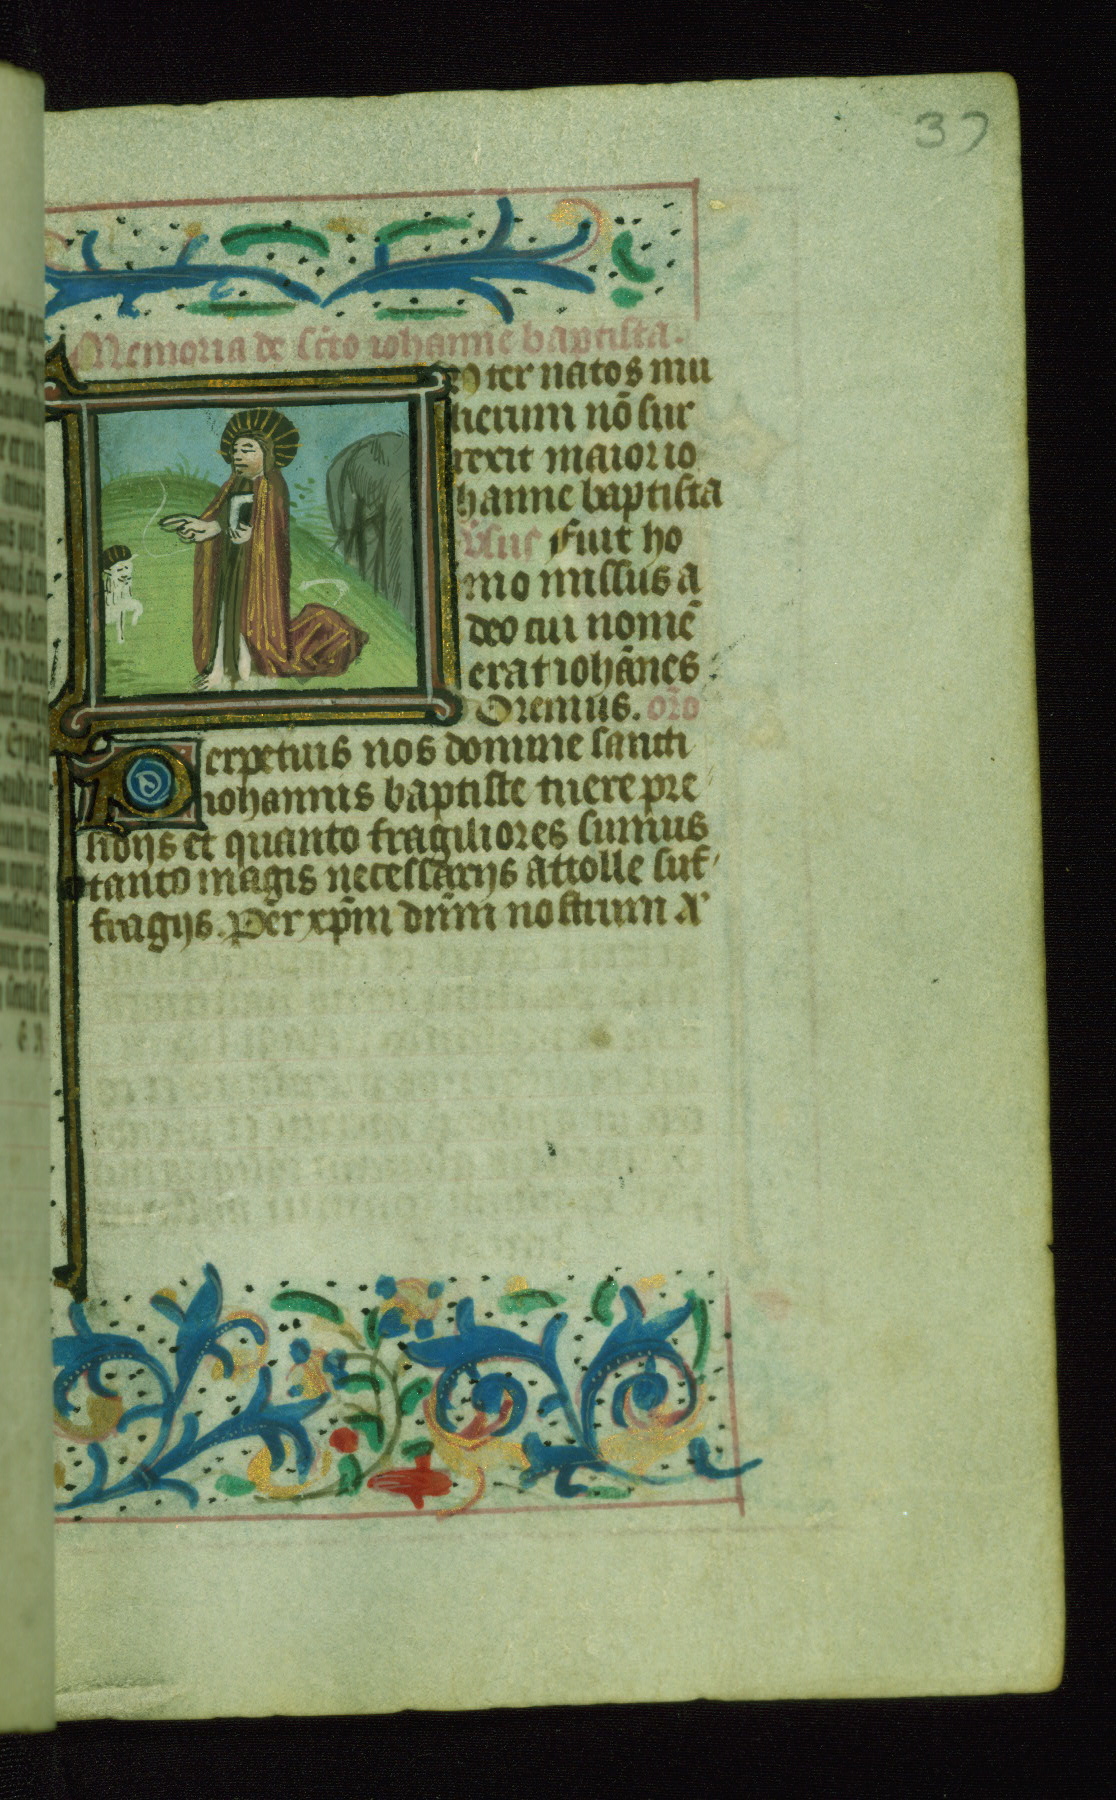 37
Memoria de scto iohanne baptista.
nter natos mu
lierum nō sur
rexit maior io
hanne baptista
v̄sus Fuit ho
mo missus a
deo cui nomē
erat iohānes
Oremus. or̄o
Perpetuis nos domine sancti
iohannis baptiste tuere pre
sidijs et quanto fragiliores sumus
tanto magis necessarijs attolle suf
fragijs. Per xp̄m dn̄m nostrum A